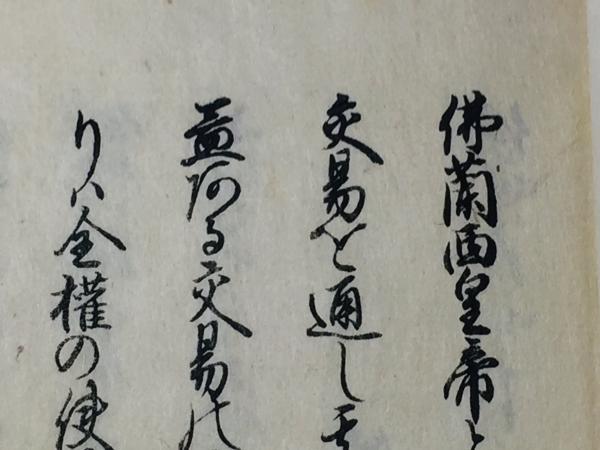 佛蘭西皇帝と
交易を通し其
益ある交易の
りハ全權の使